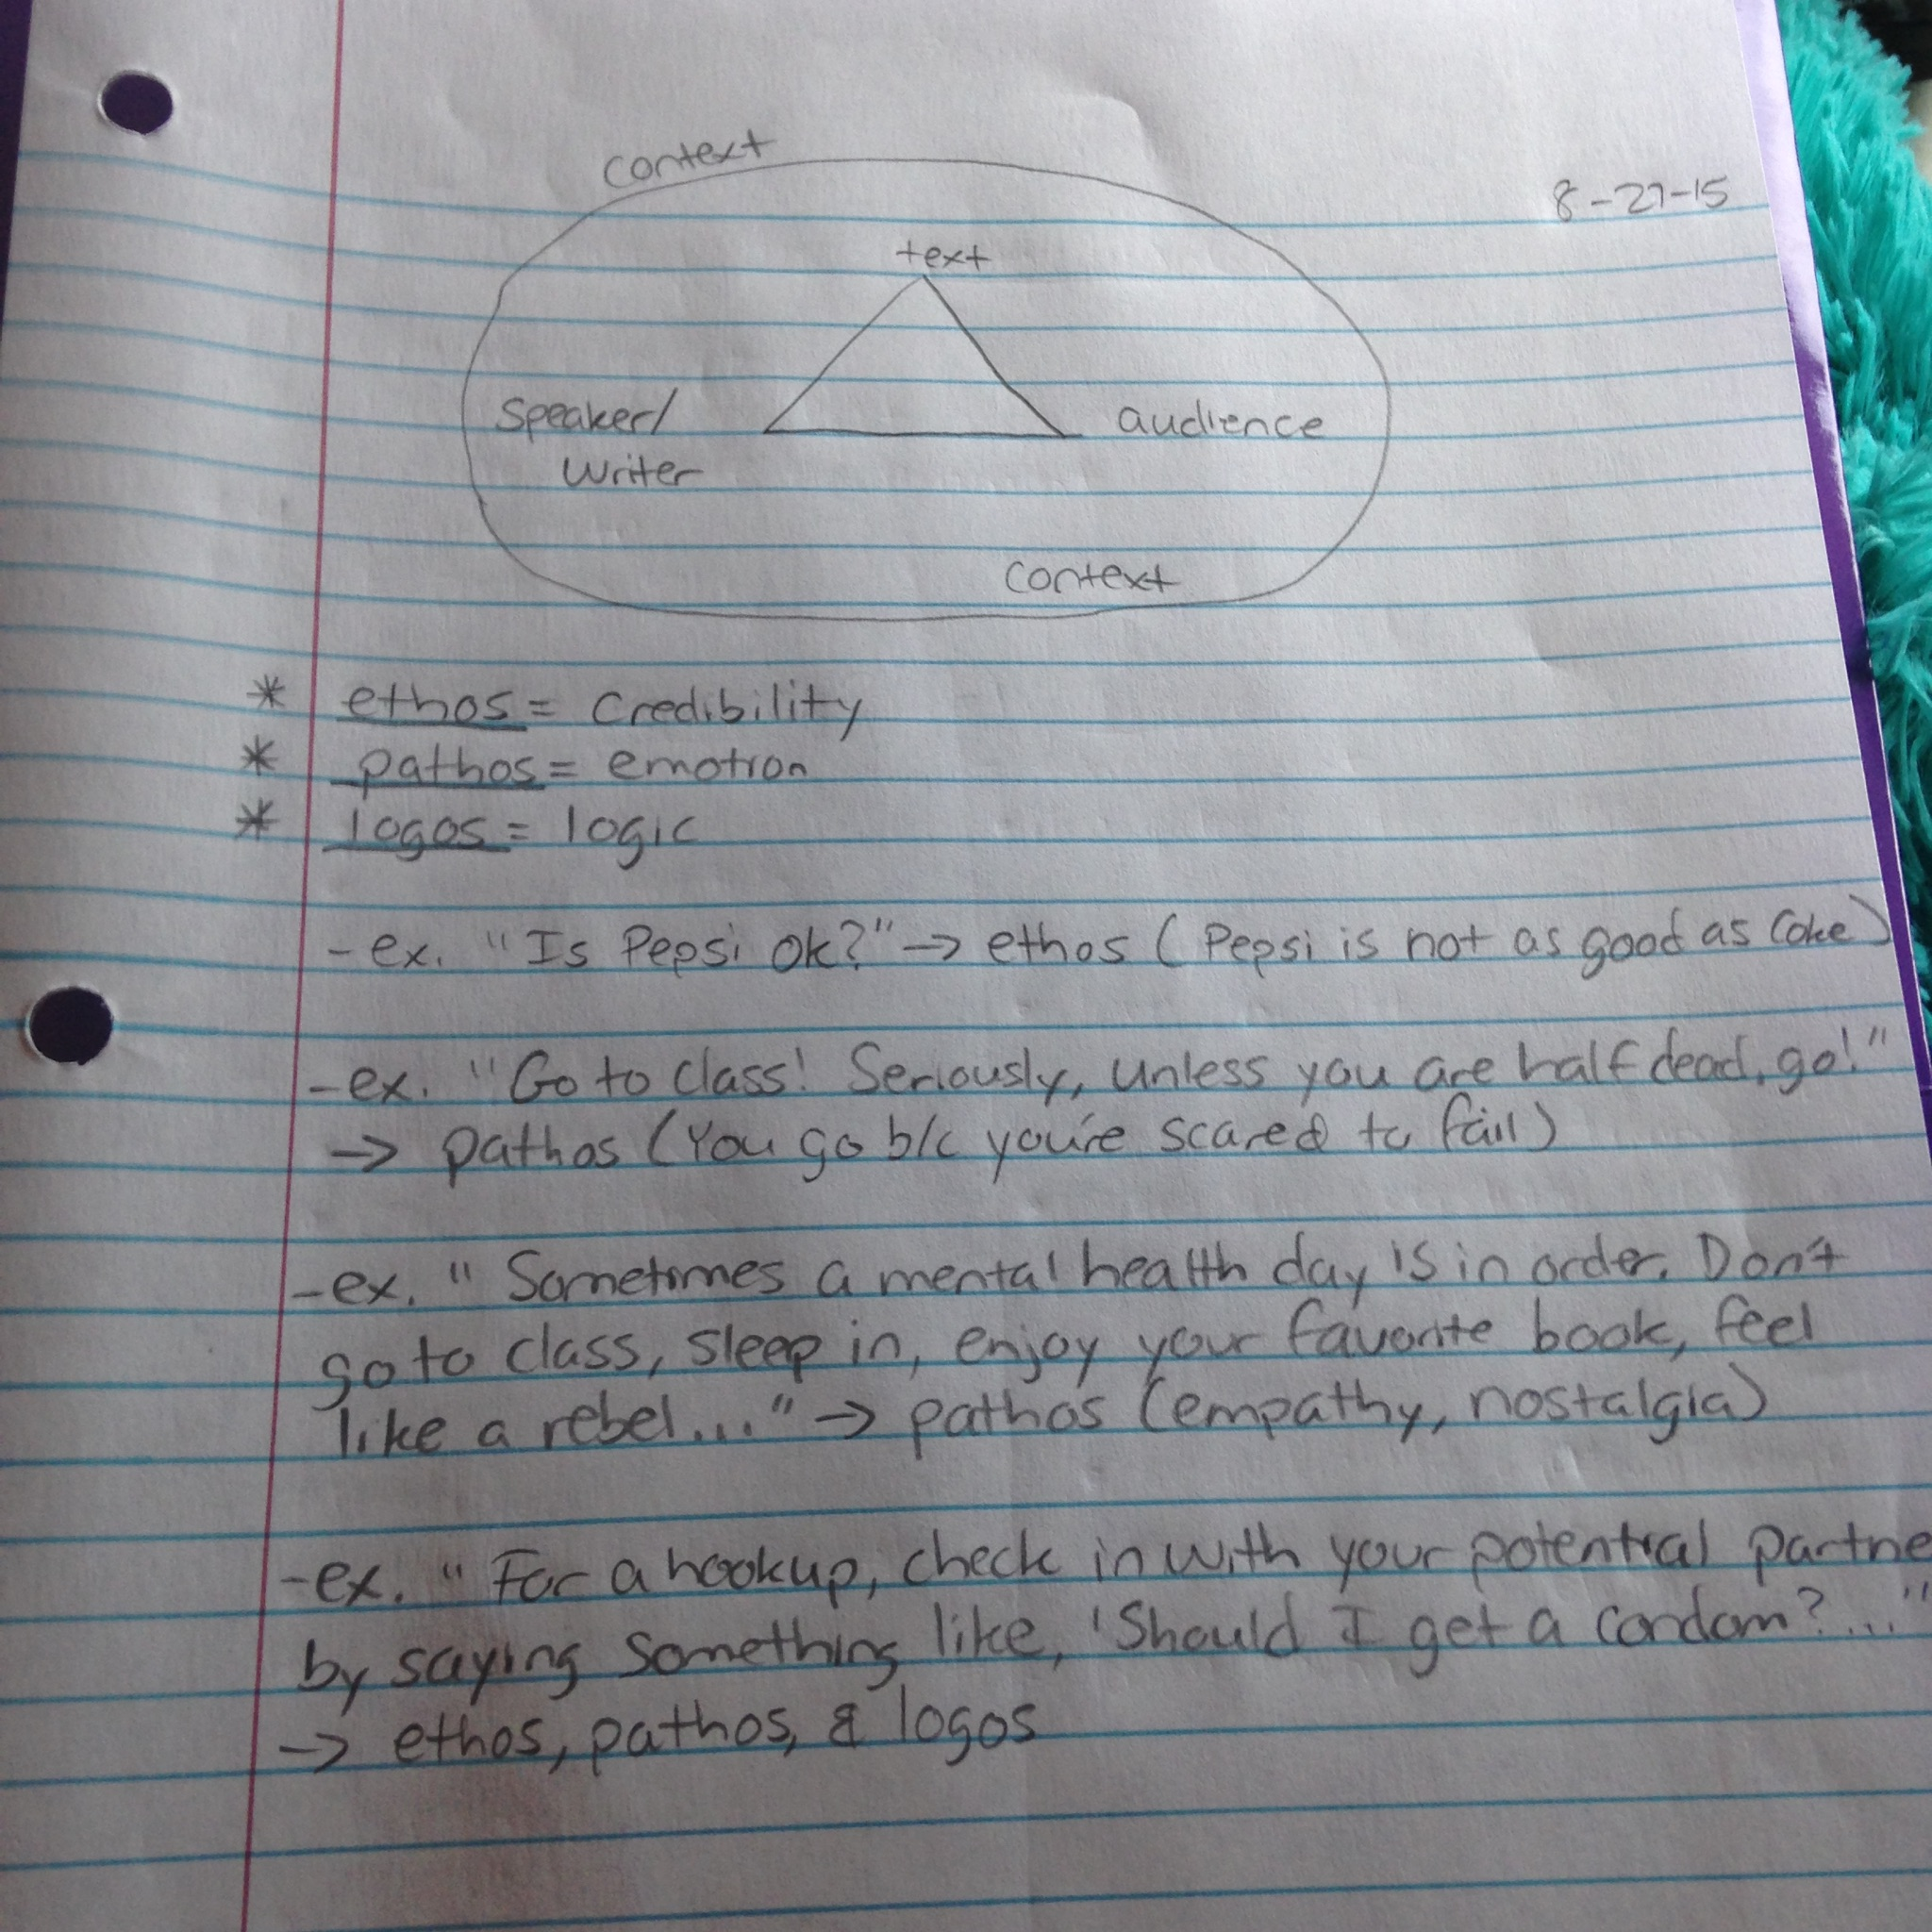 context
8-27-15
text
Speaker/
Writer
audience
context
* ethos = Credibility
* pathos = emotion
* logos = logic
- ex. "Is Pepsi ok?" → ethos (Pepsi is not as good as Coke)
- ex. "Go to class! Seriously, unless you are half dead, go!"
→ pathos (You go b/c you're scared to fail)
- ex. "Sometimes a mental health day is in order. Don't
go to class, sleep in, enjoy your favorite book, feel
like a rebel..." → pathos (empathy, nostalgia)
- ex. "For a hookup, check in with your potential partne
by saying something like, 'Should I get a condom?..."
→ ethos, pathos, & logos